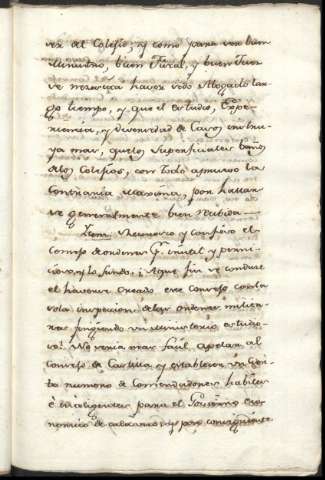 ver del Colegio, y como para un buen
Ministro, buen Fiscal, y buen Juez
se necesita haver sido Abogado lar-
go tiempo, y que el estudio, Expe-
riencia, y diversidad de casos, instru-
ya mas, que los superficiales
de los Colegios, con todo apruevo la
contraria maxima, por hallar-
se generalmente bien recibida.
Item. Reconosco y confieso el
Consejo de ordenes inutil y perni-
cioso, y lo fundo, ¿A que fin se conduce
el haverse creado ese Consejo con la
sola inspeccion de las ordenes milita-
res fingiendo un Ministerio estudio-
so? No seria mas facil apelar al
Consejo de Castilla y establecer un
numero de Comendadores habiles
è inteligentes para el Govierno Eco-
nomico de cada uno, y por consiguiente